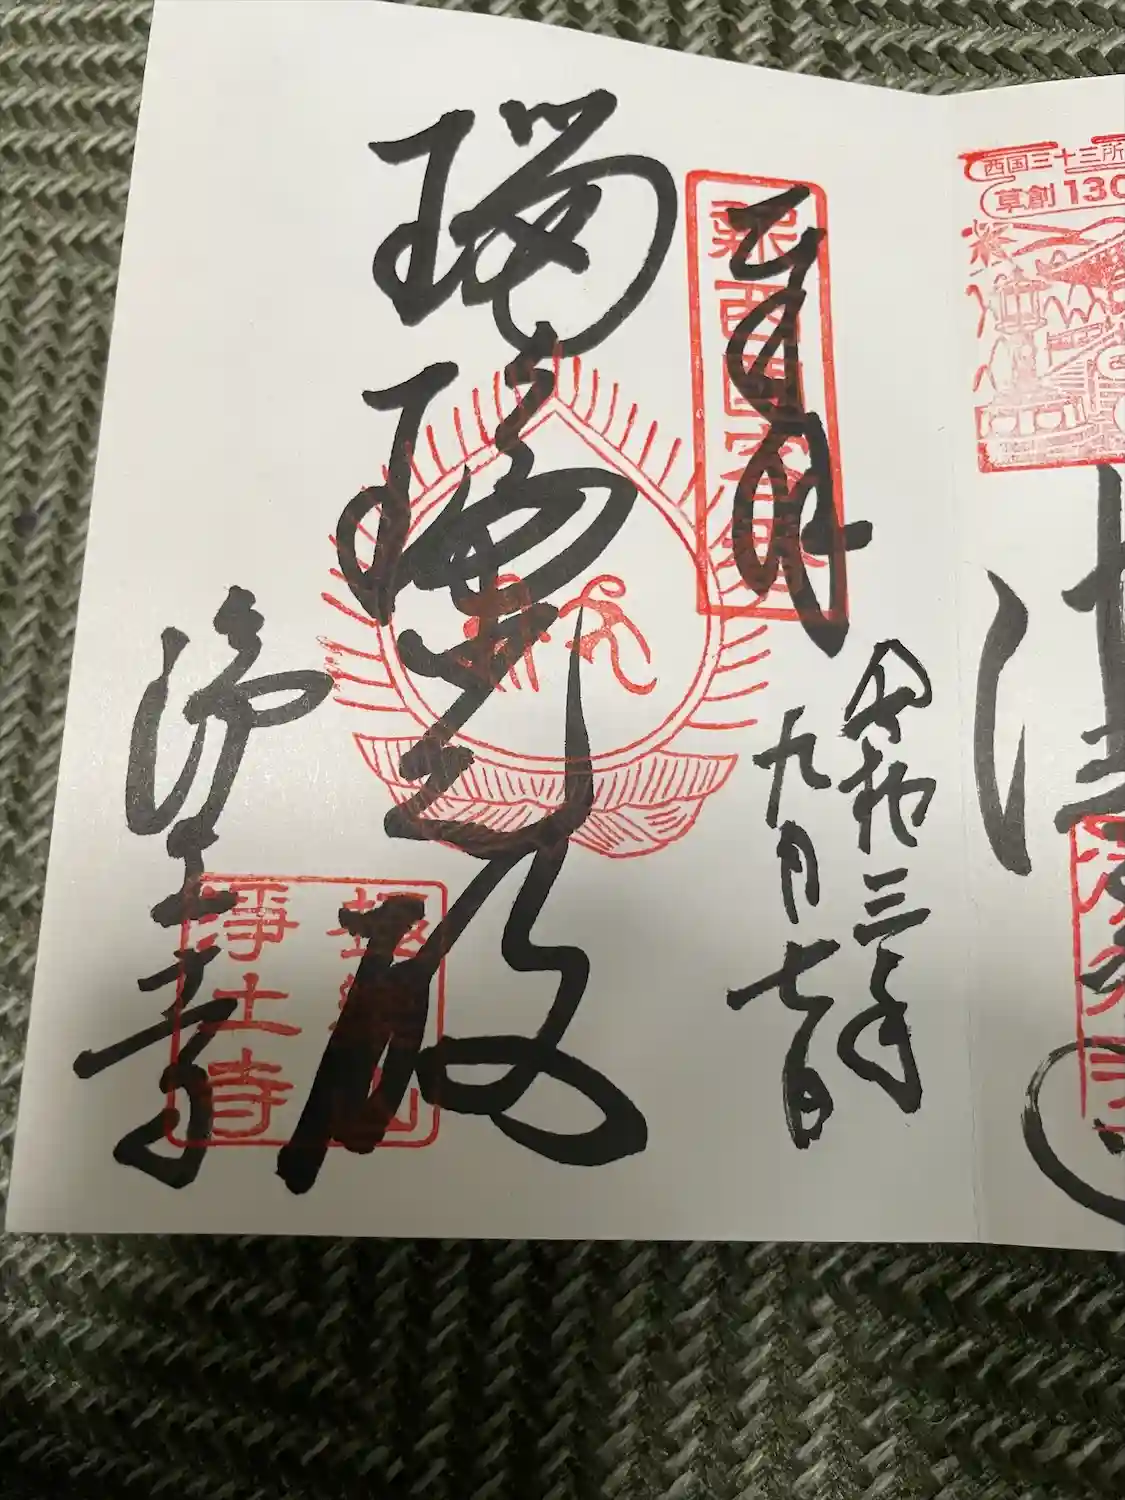 西国三十三所
草創130
新西国客番
令和三年
九月七日
瑠璃殿
極楽山
浄土寺
浄土寺